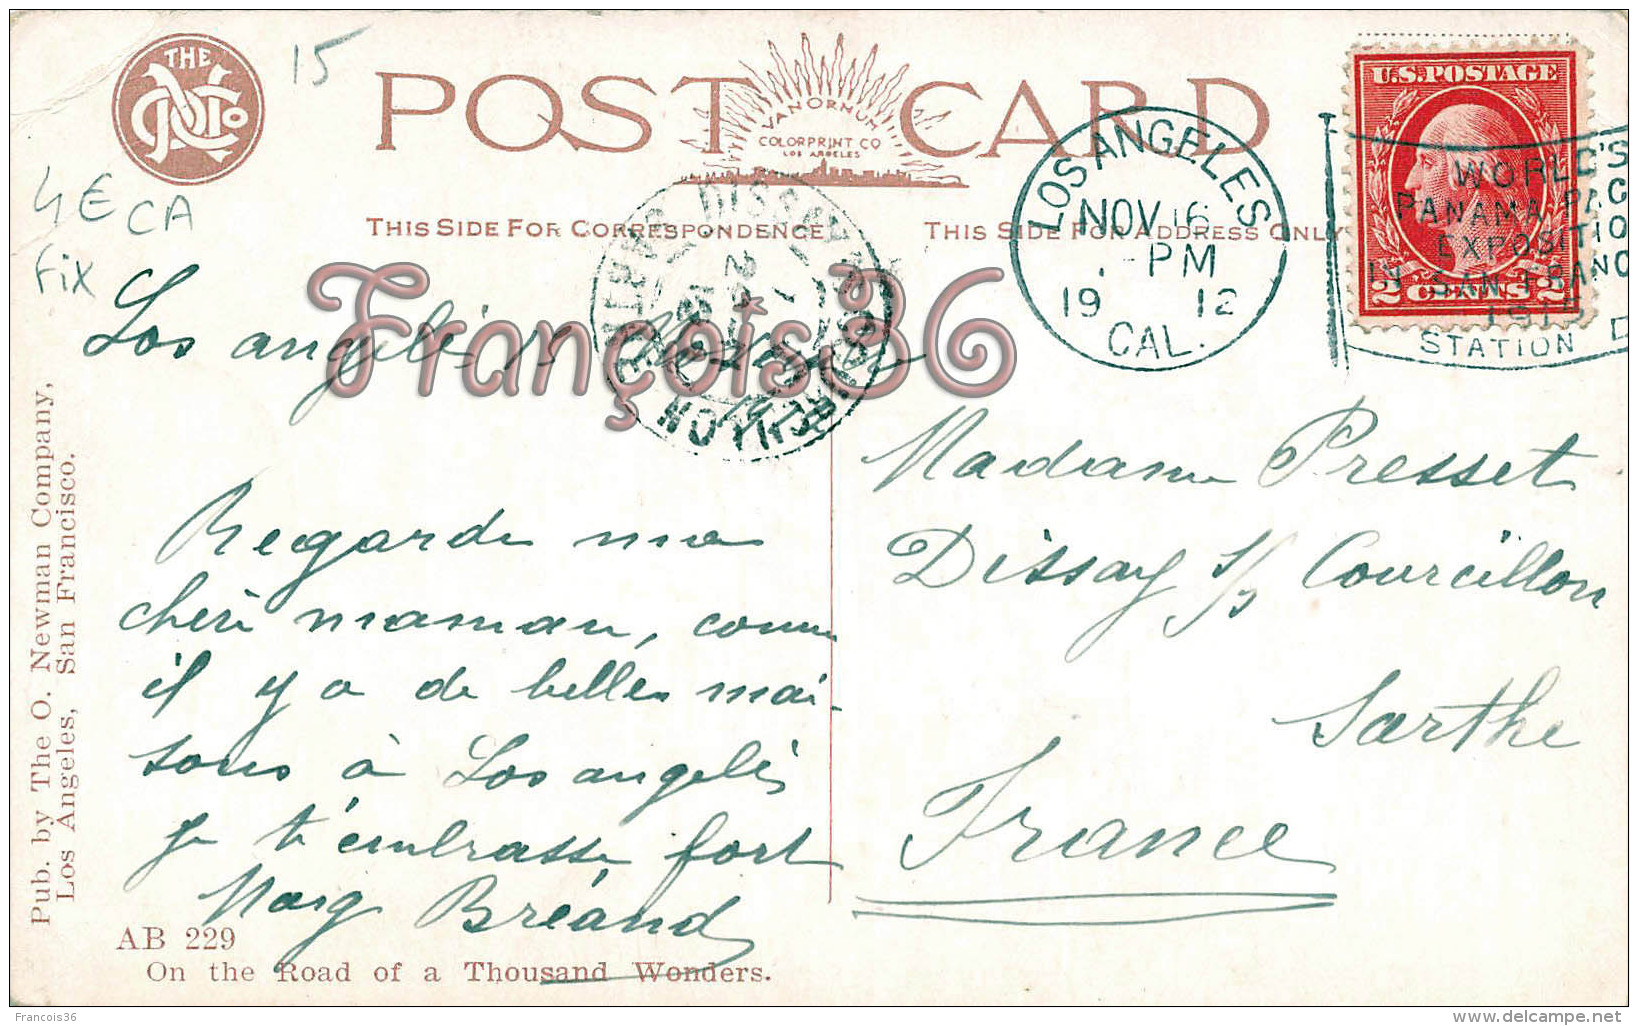 THE
O N Co
15
POST CARD
VAN ORNUM
COLORPRINT CO
LOS ANGELES
THIS SIDE FOR CORRESPONDENCE
THIS SIDE FOR ADDRESS ONLY
U.S. POSTAGE
2 CENTS 2
LOS ANGELES
NOV 16
PM
19 12
CAL.
WORLD'S
PANAMA PAC
EXPOSITIO
IN SAN FRANC
1915
STATION D
4E CA
Fix
François36
Los angelès
Regarde ma
chère maman, comme
il y a de belles mai-
sons à Los angelès
je t'embrasse fort
Marg Bréand
Madame Presset
Dissay s/s Courcillon
Sarthe
France
Pub. by The O. Newman Company,
Los Angeles, San Francisco.
AB 229
On the Road of a Thousand Wonders.
Francois36
delcampe.net